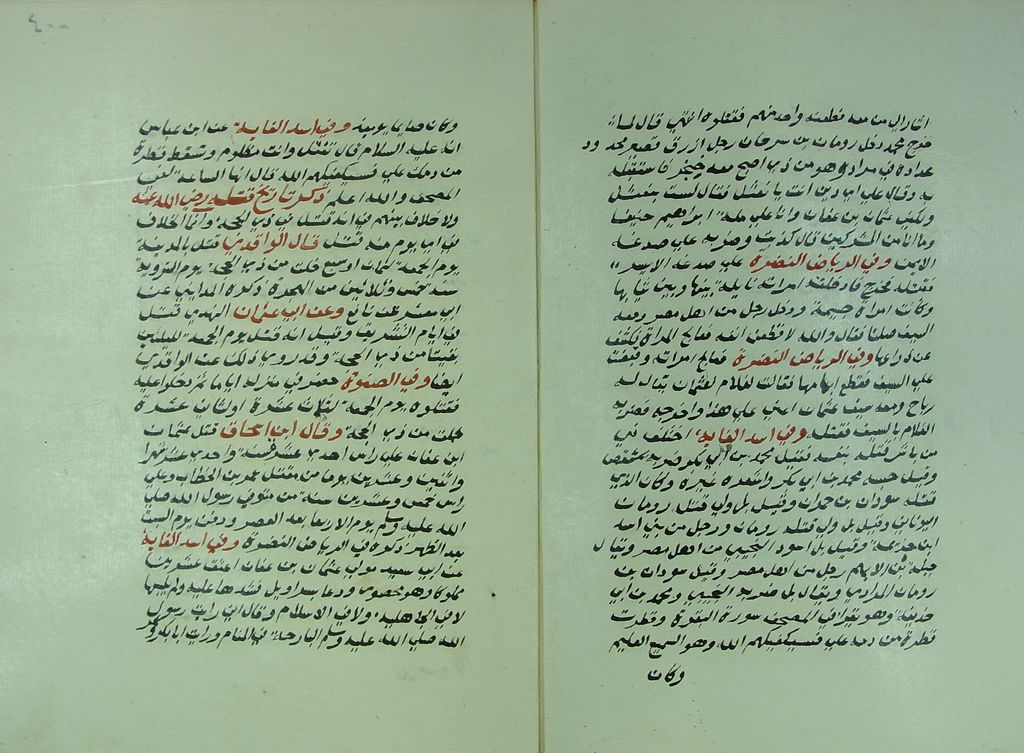 اشار الى من معه فطعنه واحد منهم فقتلوه انتهى قال لما
خرج محمد دخل رومان بن سرحان رجل ازرق قصير محدود
عداده في مراد وهو من ذي اصبح معه خنجر فاستقبله
به وقال على اي دين انت يا نعثل فقال لست بنعثل
ولكني عثمان بن عفان وانا على ملة ابراهيم حنيفا
وما انا من المشركين قال كذبت وضربه على صدغه
الايمن وفي الرياض النضرة على صدغه الايسر
فقتله فخر فادخلته امراته نايلة بينها وبين ثيابها
وكانت امراة جسيمة ودخل رجل من اهل مصر ومعه
السيف صلتا فقال والله لاقطعن انفه فعالج المراة فكشف
عن ذراعيها وفي الرياض النضرة فعالج امراته وقبضت
على السيف فقطع ابهامها فقالت لغلام لعثمان يقال له
رباح ومعه سيف عثمان اعني على هذا واخرجه فضربه
الغلام بالسيف فقتله وفي اسد الغابة اختلف في
من باشر قتله بنفسه فقيل محمد بن ابي بكر ضربه بمشقص
وقيل حبسه محمد بن ابي بكر واسعده غيره وكان الذي
قتله سودان بن حمران وقيل بل ولي قتله رومان
اليماني وقيل بل ولي قتله رومان ورجل من بني اسد
ابن خزيمة وقيل بل اسود التجيبي من اهل مصر ويقال
جبلة بن الايهم رجل من اهل مصر وقيل سودان بن
رومان المرادي ويقال بل ضربه التجيبي ومحمد بن ابي
حذيفة وهو يقرا في المصحف سورة البقرة وقطرت
قطرة من دمه على فسيكفيكهم الله وهو السميع العليم
وكان
٤٠٠
وكان صايما يومئذ وفي اسد الغابة عن ابن عباس
انه عليه السلام قال تقتل وانت مظلوم وتسقط قطرة
من دمك على فسيكفيكهم الله قال انها الساعة لفي
المصحف والله اعلم ذكر تاريخ قتله رضي الله عنه
ولا خلاف بينهم في انه قتل في ذي الحجة وانما الخلاف
في اي يوم منه قتل قال الواقدي قتل بالمدينة
يوم الجمعة لثمان او سبع خلت من ذي الحجة يوم التروية
سنة خمس وثلاثين من الهجرة ذكره المدايني عن
ابي معشر عن نافع وعن ابي عثمان النهدي قتل
في ايام التشريق وقيل انه قتل يوم الجمعة لليلتين
بقيتا من ذي الحجة وقد روي ذلك عن الواقدي
ايضا وفي الصفوة حصر في منزله اياما ثم دخلوا عليه
فقتلوه يوم الجمعة لثلاث عشرة او لثمان عشرة
خلت من ذي الحجة وقال ابن اسحاق قتل عثمان
ابن عفان على راس احدى عشرة سنة واحدى عشر شهرا
واثنين وعشرين يوما من مقتل عمر بن الخطاب وعلى
راس خمس وعشرين سنة من متوفى رسول الله صلى
الله عليه وسلم يوم الاربعا بعد العصر ودفن يوم السبت
بعد الظهر ذكره في الرياض النضرة وفي اسد الغابة
عن ابي سعيد مولى عثمان بن عفان اعتق عشرين
مملوكا وهو محصور ودعا بسراويل فشدها عليه ولم يلبسها
لا في الجاهلية ولا في الاسلام وقال اني رايت رسول
الله صلى الله عليه وسلم البارحة في المنام ورايت ابا بكر و